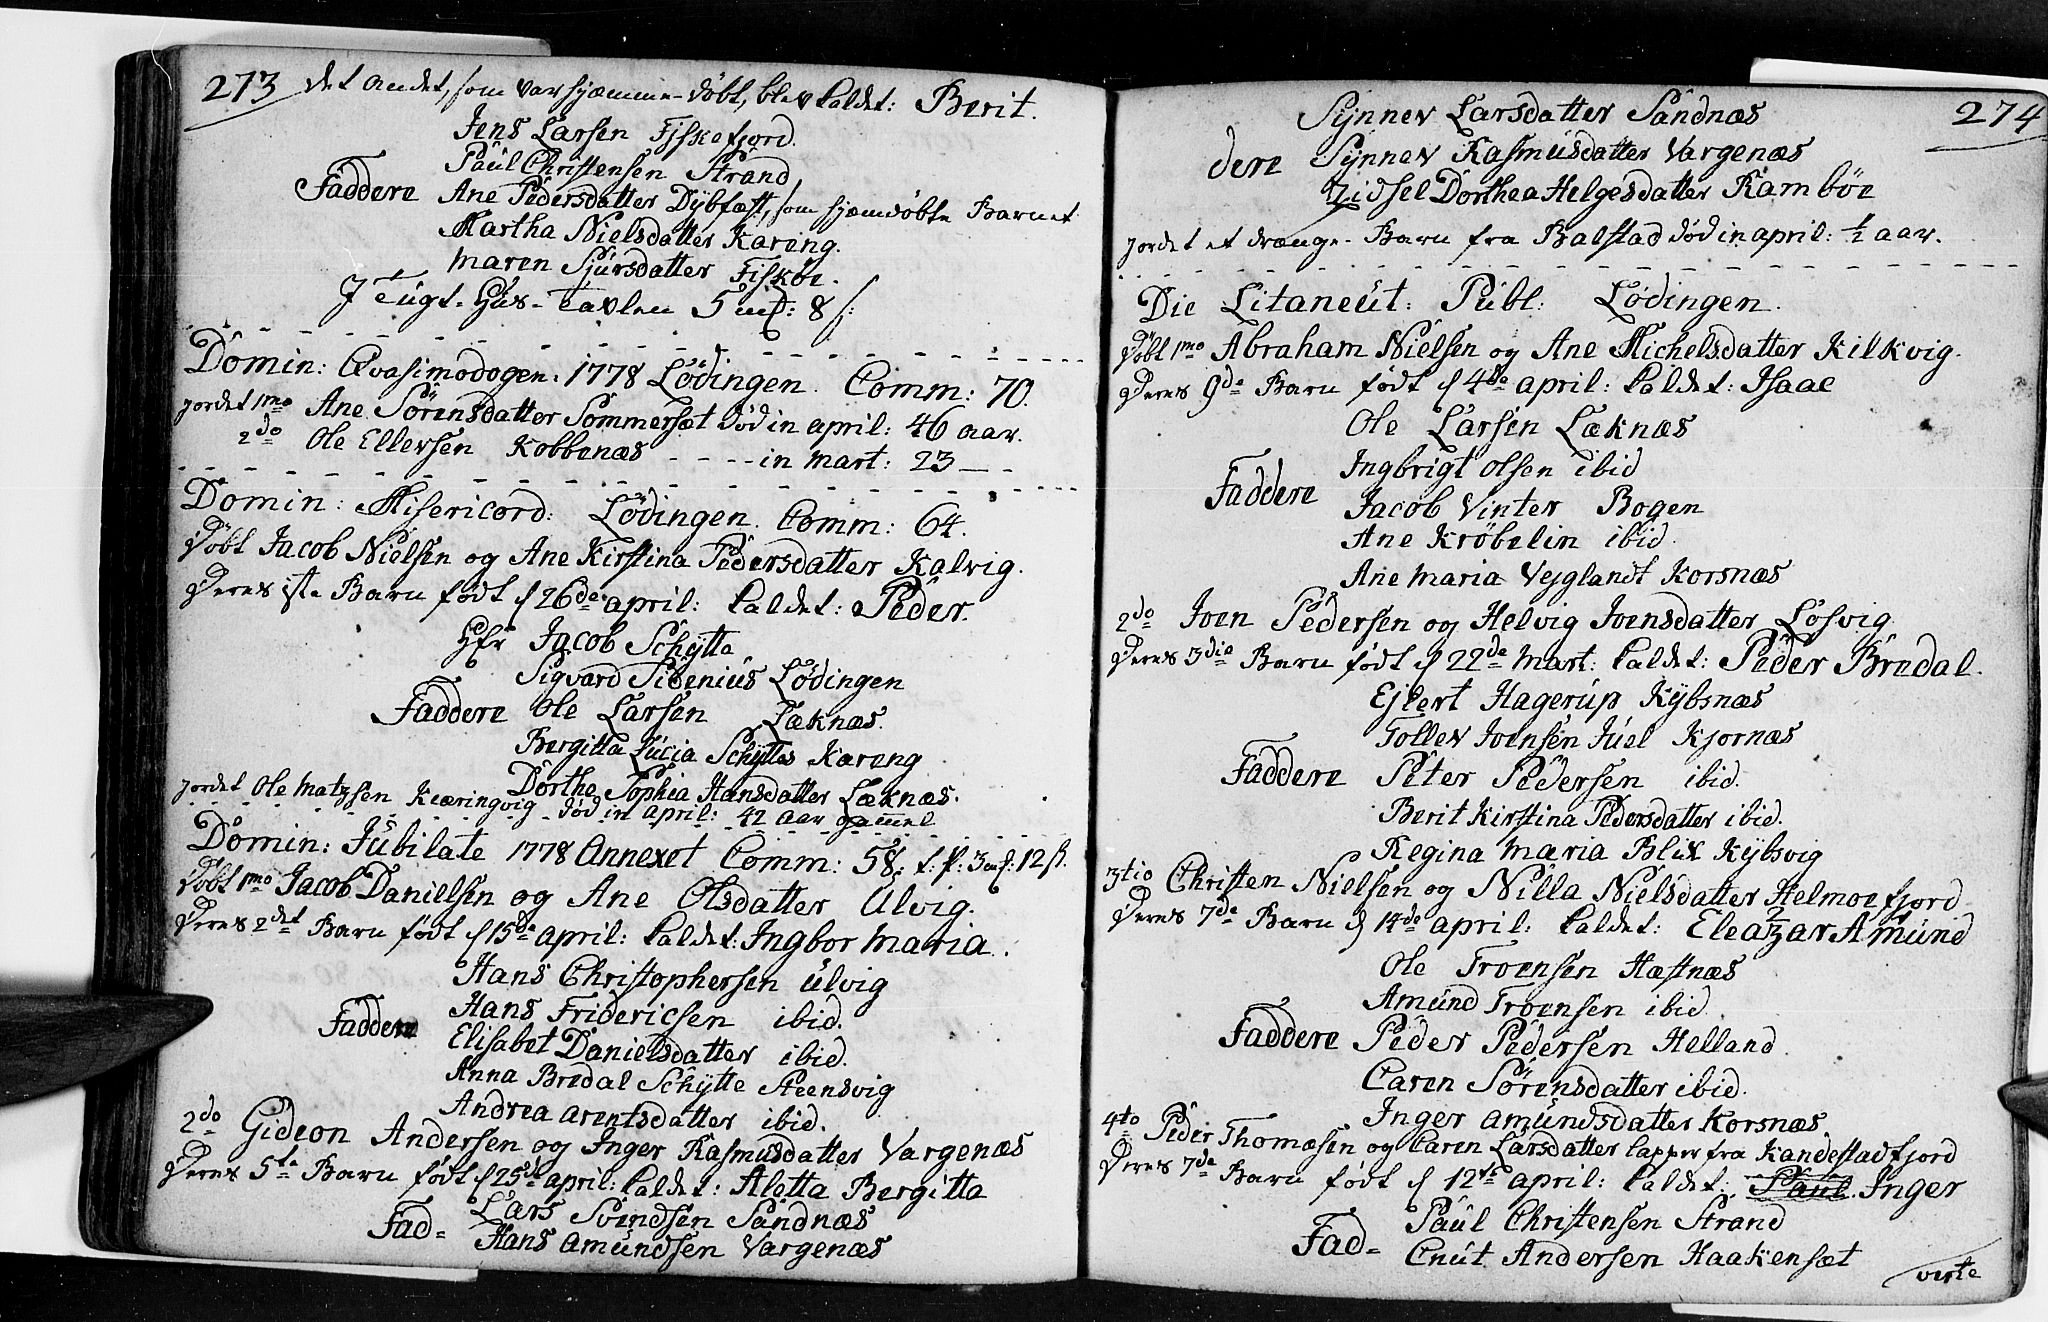 273 det andet, som var hjæmme-døbt, blev kaldet: Berit.
Jens Larsen Fiskefjord.
Paul Christensen Strand
Faddere Ane Pedersdatter Dybfæst, som hjemdøbte Barnet
Martha Nielsdatter Kareng.
Maren Sjursdatter Fiskøe.
J Tugt-Hus-Tavlen 5 mk: 8 s:
Domin: Qvasimodogen: 1778 Lødingen. Comm: 70.
jordet 1mo Ane Sörensdatter Sommersæt død in april: 46 aar.
2do Ole Ellevsen Kobbenæs - - - - in Mart: 23 - -
Domin: Misericord: Lødingen. Comm: 64.
Døbt Jacob Nielsen og Ane Kirstina Pedersdatter Kalvig.
Deres 1ste Barn født d 26de april: kaldet: Peder.
Hfr Jacob Schytte
Sigvard Sidenius Lødingen
Faddere Ole Larsen Læknæs.
Bergitta Lucia Schyttes Kareng
Dorthe Sophia Hansdatter Læknæs.
jordet Ole Matzsen Kiæringvig død in april: 42 aar gammel
Domin: Jubilate 1778 Annexet Comm: 58. t: f: 3 mk: 12 s.
Døbt 1mo Jacob Danielsen og Ane Olsdatter Ulvig.
Deres 2det Barn født d 15de april: kaldet: Ingbor Maria.
Hans Christophersen Ulvig
Hans Fridericsen ibid.
Faddere Elisabet Danielsdatter ibid.
Anna Bredal Schytte Steensvig
Andrea Arentsdatter ibid.
2do Gideon Andersen og Inger Rasmusdatter Vargenæs
Deres 5te Barn født d 25de april: kaldet: Aletta Bergitta
Lars Svendsen Sandnæs
Fad= Hans Amundsen Vargenæs
274
Synnev Larsdatter Sandnæs
dere Synnev Rasmusdatter Vargenæs
Zidsel Dorthea Helgesdatter Rambøe
jordet et drænge-Barn fra Balstad død in april: ½ aar.
Die Litaneut: Publ: Lødingen.
Døbt 1mo Abraham Nielsen og Ane Michelsdatter Kilkvig.
Deres 9de Barn født d 4de april: kaldet: Isaac
Ole Larsen Læknæs
Ingbrigt Olsen ibid
Faddere Jacob Vinter Bogen
Ane Kröbelin ibid.
Ane Maria Vejglandt Korsnæs
2do Joen Pedersen og Helvig Joensdatter Losvig
Deres 3die Barn født d 22de Mart: kaldet: Peder Bredal.
Ejlert Hagerup Kybsnæs
Tollev Joensen Juel Kjornæs
Faddere Peter Pedersen ibid.
Berit Kirstina Pedersdatter ibid.
Regina Maria Blix Kybsvig
3tio Christen Nielsen og Nilla Nielsdatter Helmoefjord
Deres 7de Barn d 14de april: kaldet: Eleatzar Amund
Ole Troensen Hæstnæs
Amund Troensen ibid.
Faddere Peder Pedersen Helland.
Caren Sörensdatter ibid.
Inger Amundsdatter Korsnæs.
4to Peder Thomæsen og Caren Larsdatter Lapper fra Kandestadfjord
Deres 7de Barn født d 12te april: kaldet: Paul Inger
Paul Christensen Strand
Fad= Cnut Andersen Haakensæt
verte